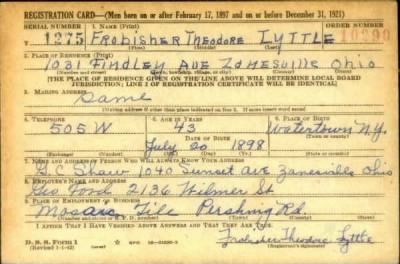 REGISTRATION CARD—(Men born on or after February 17, 1897 and on or before December 31, 1921)
SERIAL NUMBER 1. NAME (Print) ORDER NUMBER
1275 Frobisher Theodore Lyttle 10290
(First) (Middle) (Last)
2. PLACE OF RESIDENCE (Print)
1031 Findley Ave Zanesville Ohio
(Number and street) (Town, township, village, or city) (County) (State)
[THE PLACE OF RESIDENCE GIVEN ON THE LINE ABOVE WILL DETERMINE LOCAL BOARD
JURISDICTION; LINE 2 OF REGISTRATION CERTIFICATE WILL BE IDENTICAL]
3. MAILING ADDRESS
Same
[Mailing address if other than place indicated on line 2. If same insert word same]
4. TELEPHONE 5. AGE IN YEARS 6. PLACE OF BIRTH
505 W 43 Watertown
DATE OF BIRTH (Town or county)
July 20 1898 N.Y.
(Exchange) (Number) (Mo.) (Day) (Yr.) (State or country)
7. NAME AND ADDRESS OF PERSON WHO WILL ALWAYS KNOW YOUR ADDRESS
G.C Shaw 1040 Sunset Ave Zanesville Ohio
8. EMPLOYER'S NAME AND ADDRESS
Geo Ford 2136 Wilmer St
9. PLACE OF EMPLOYMENT OR BUSINESS
Mosaic Tile Pershing Rd.
(Number and street or R. F. D. number) (Town) (County) (State)
I AFFIRM THAT I HAVE VERIFIED ABOVE ANSWERS AND THAT THEY ARE TRUE.
D. S. S. Form 1
(Revised 1-1-42) (over) Frobisher Theodore Lyttle